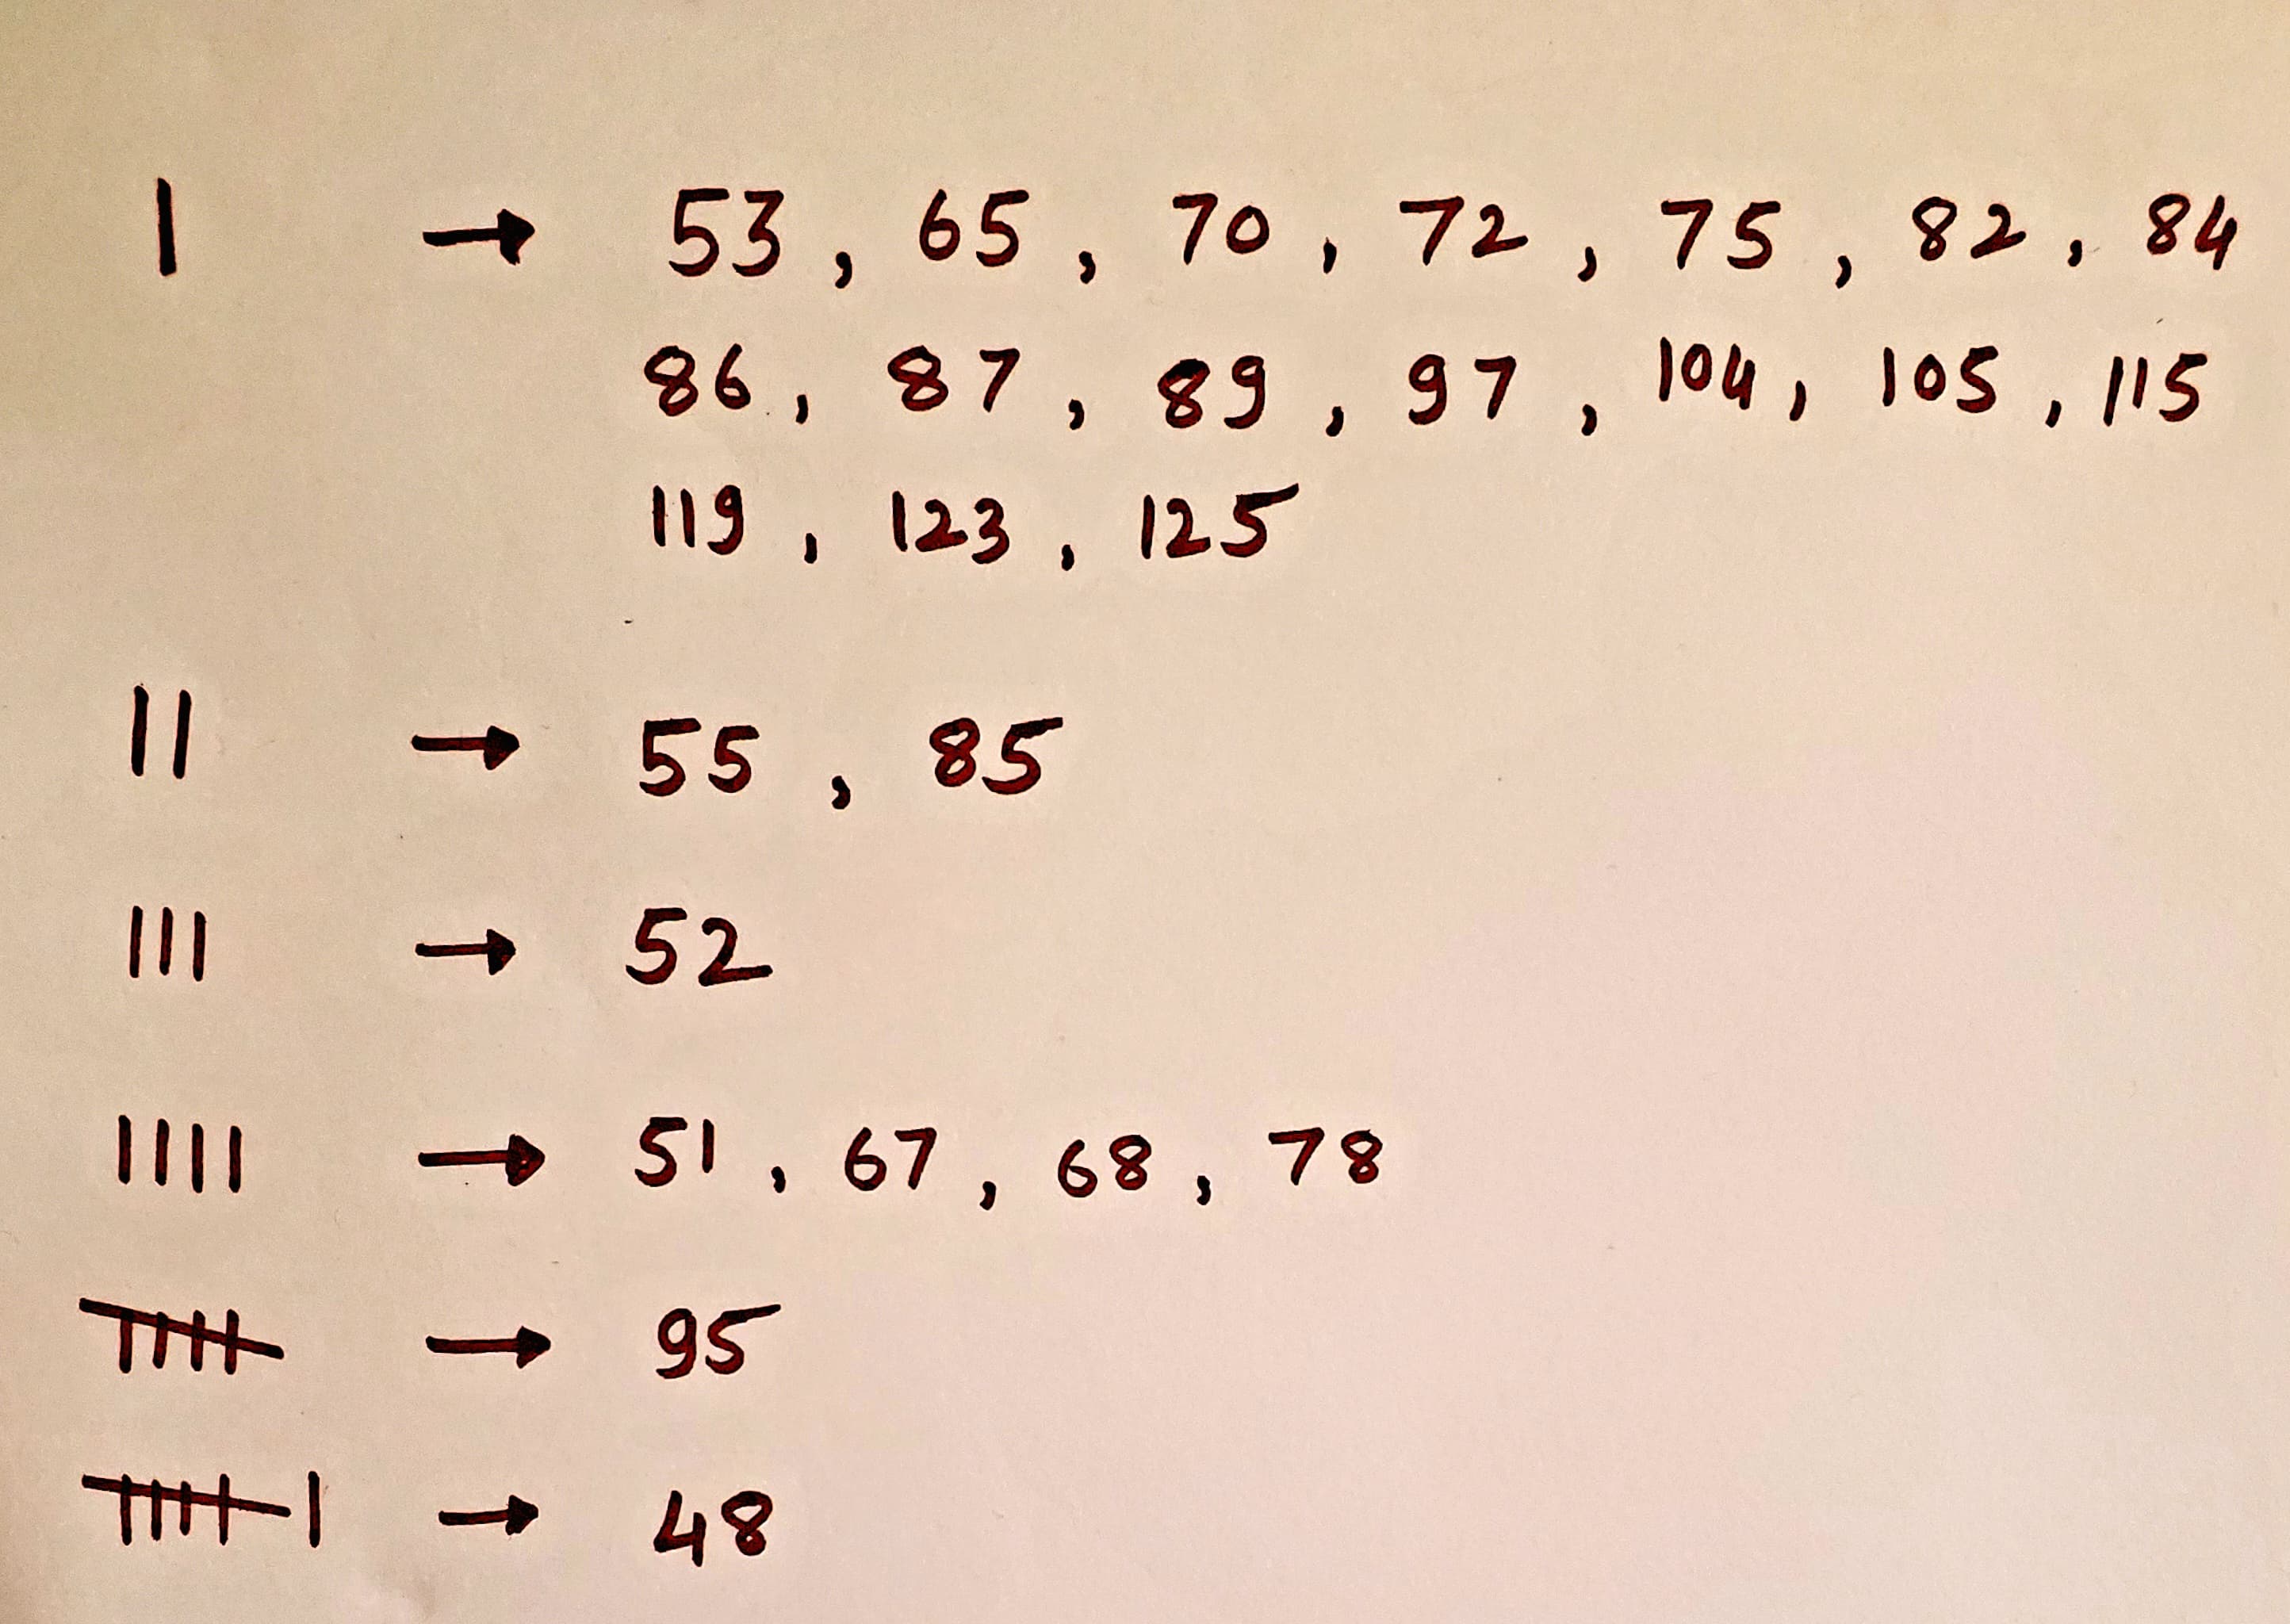 | → 53, 65, 70, 72, 75, 82, 84
86, 87, 89, 97, 104, 105, 115
119, 123, 125
|| → 55, 85
||| → 52
|||| → 51, 67, 68, 78
卌 → 95
卌| → 48